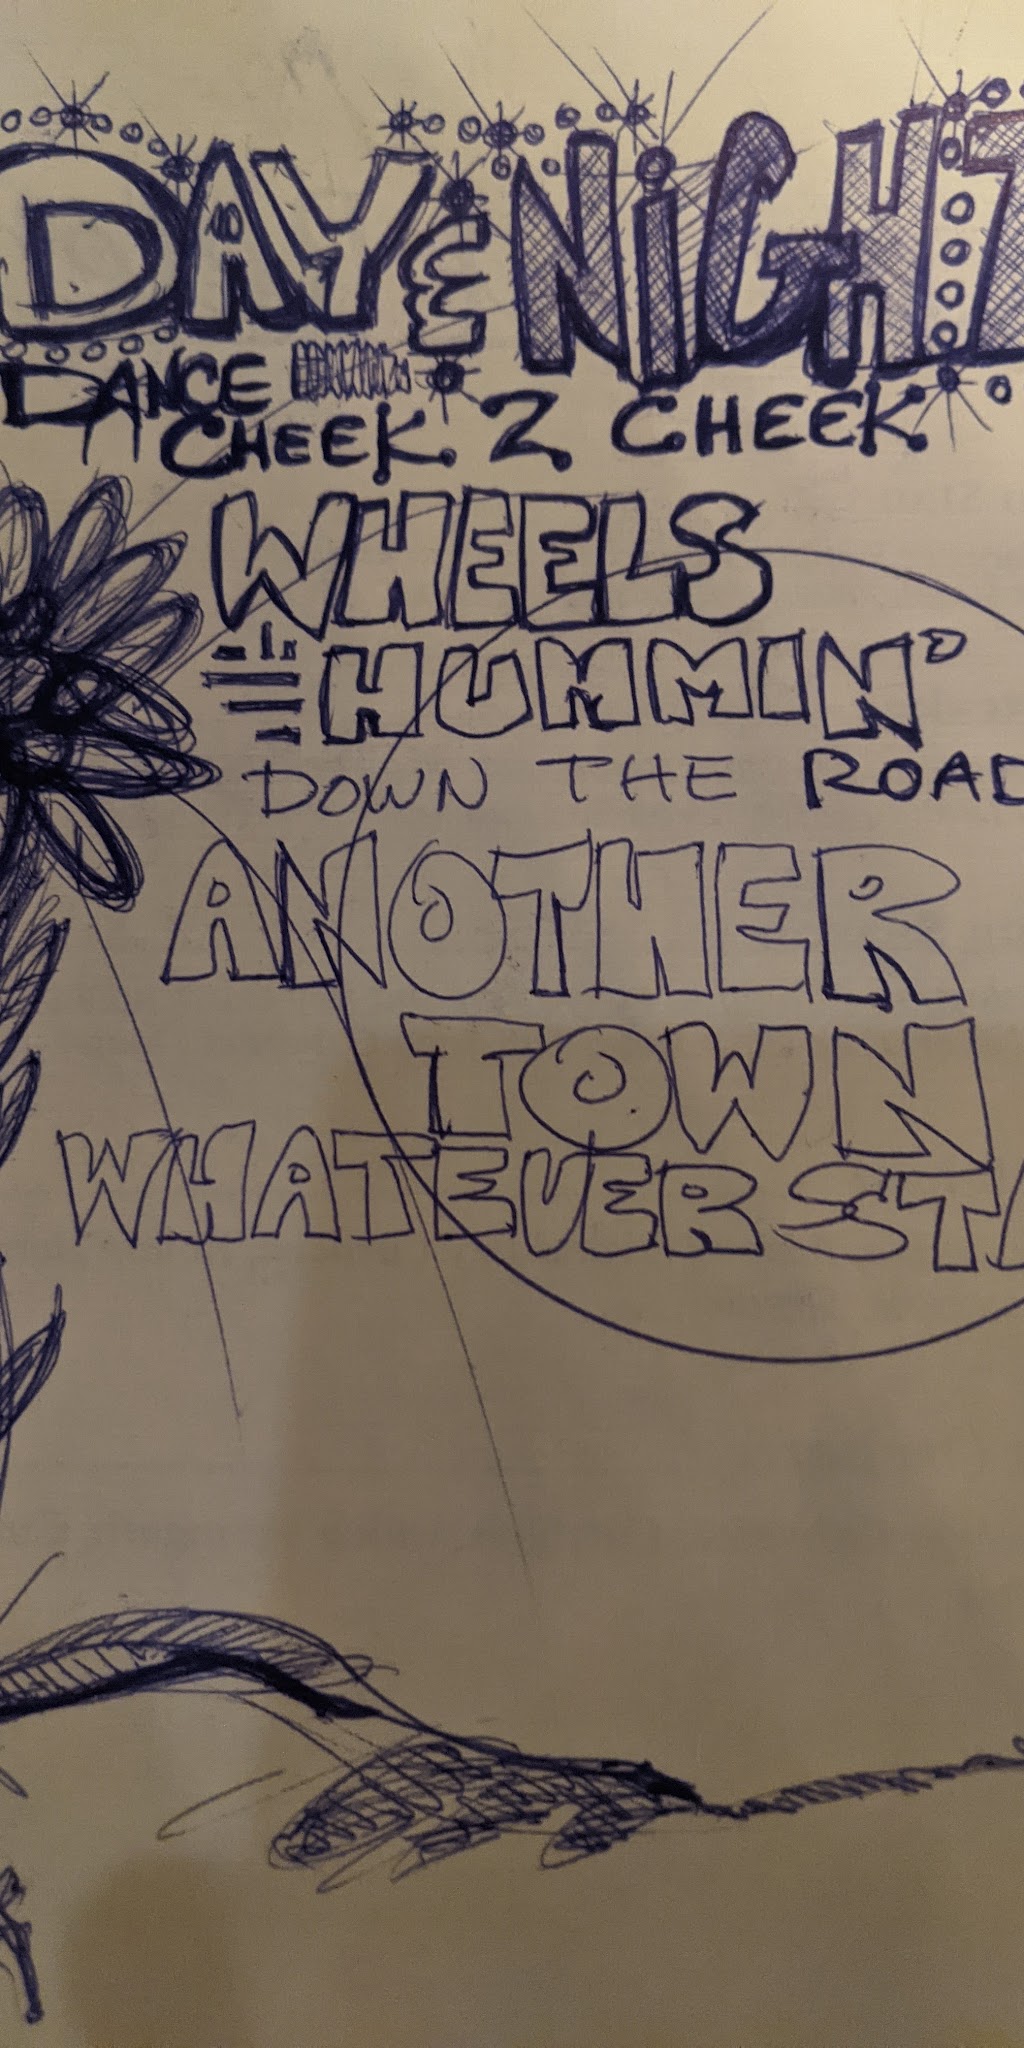 DAY & NiGHT
DANCE
CHEEK 2 CHEEK
WHEELS
HUMMIN'
DOWN THE ROAD
ANOTHER
TOWN
WHATEVER STA